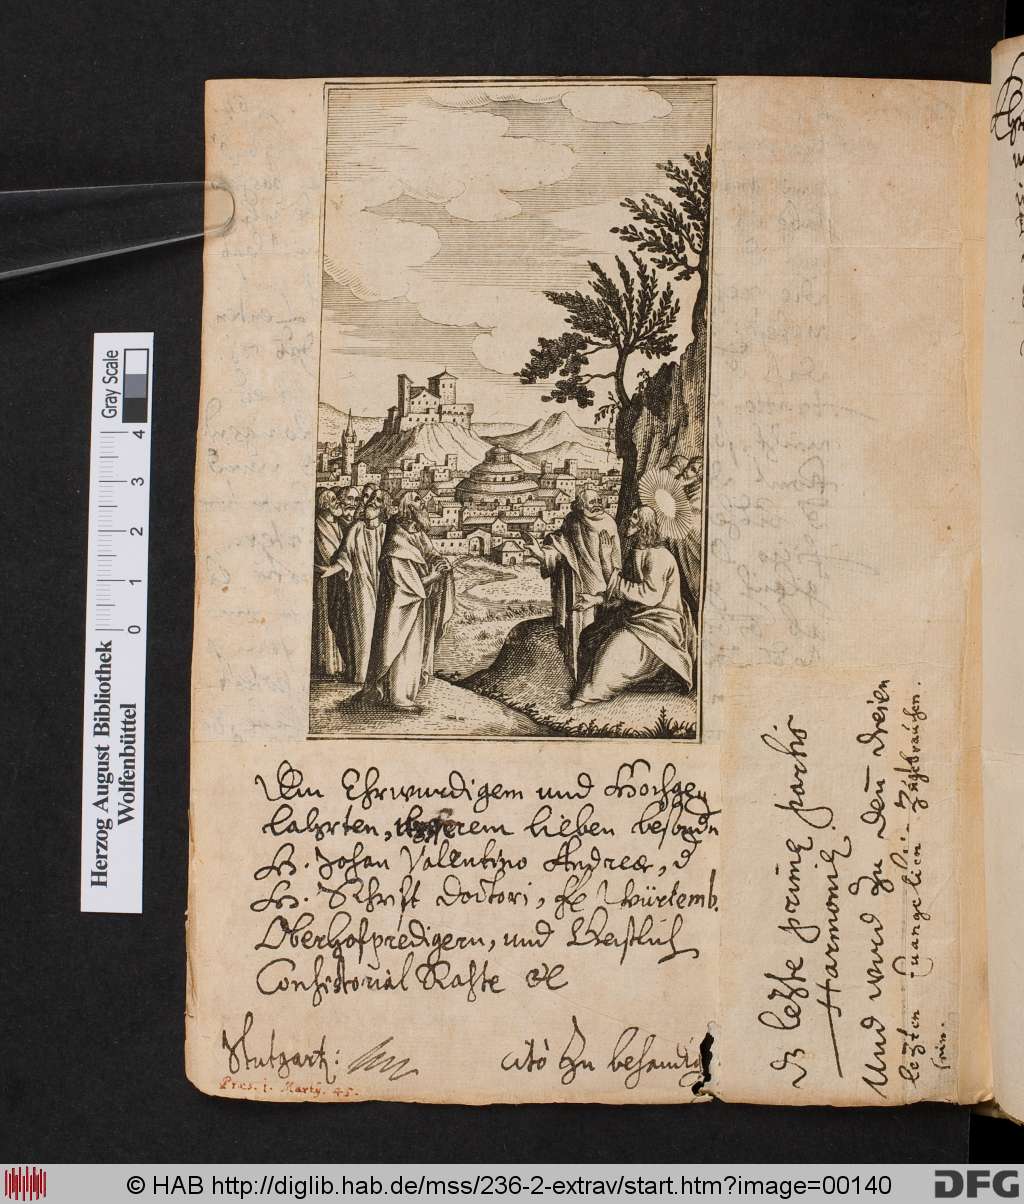 Dem Ehrwurdigem und Hochge
lahrten, unserem lieben besondn
H. Johan Vallentino Andreæ, d
H. Schrift Doctori, fe Würtemb.
Oberhofpredigern, und Geistlich
Consistorial Rahte &c
Stutgart:
citò Zu behandig
Præs. 1. Martij. 45.
dz letzte
Harmoniæ
Und wird zu den dreien
letzten Euangelien
Herzog August Bibliothek
Wolfenbüttel
0 1 2 3 4
Gray Scale
© HAB http://diglib.hab.de/mss/236-2-extrav/start.htm?image=00140
DFG